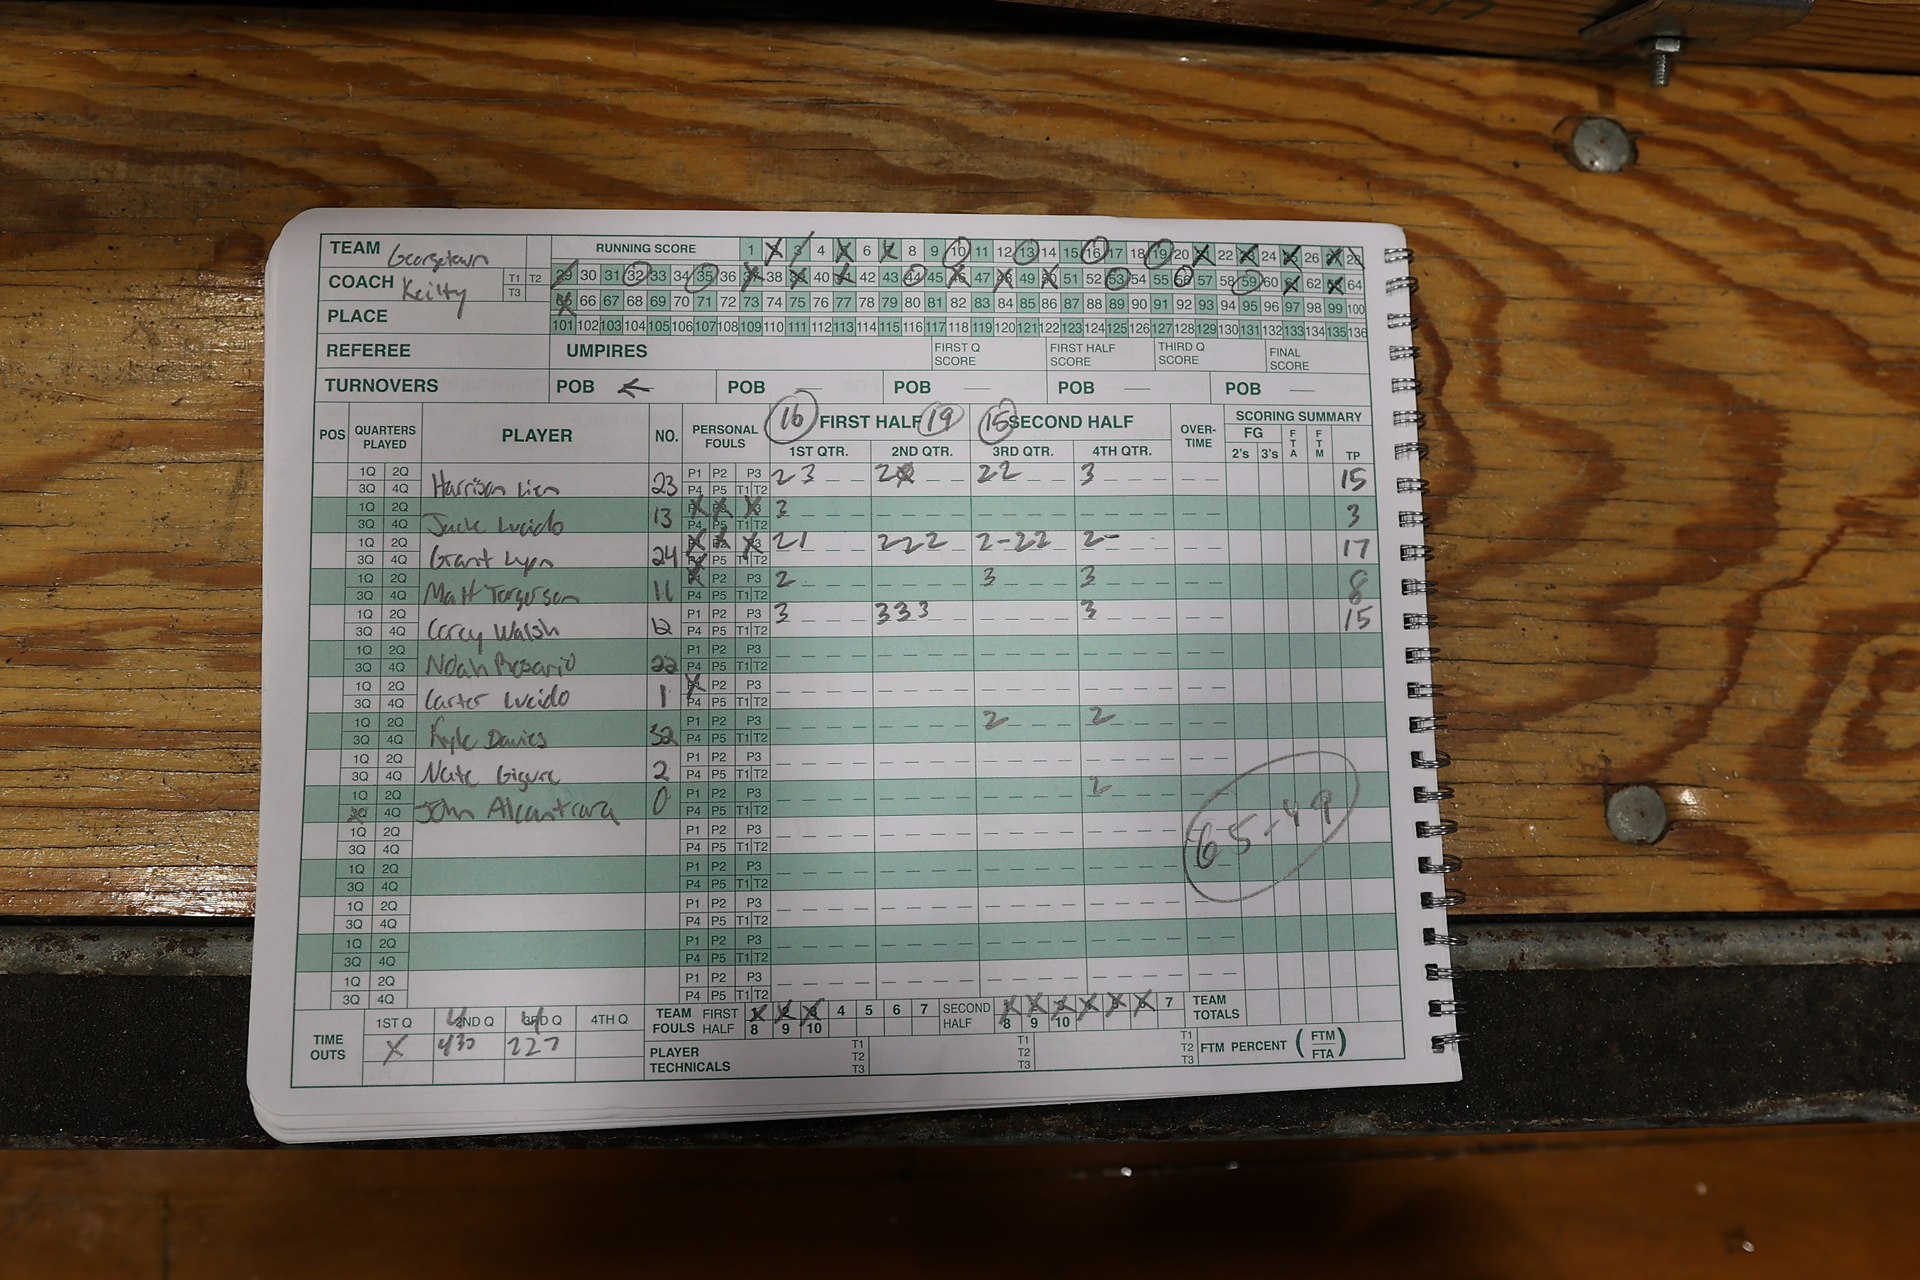 TEAM Georgetown RUNNING SCORE 1 2 3 4 5 6 7 8 9 10 11 12 13 14 15 16 17 18 19 20 21 22 23 24 25 26 27 28
COACH Keilty T1 T2 T3 29 30 31 32 33 34 35 36 37 38 39 40 41 42 43 44 45 46 47 48 49 50 51 52 53 54 55 56 57 58 59 60 61 62 63 64
65 66 67 68 69 70 71 72 73 74 75 76 77 78 79 80 81 82 83 84 85 86 87 88 89 90 91 92 93 94 95 96 97 98 99 100
PLACE 101 102 103 104 105 106 107 108 109 110 111 112 113 114 115 116 117 118 119 120 121 122 123 124 125 126 127 128 129 130 131 132 133 134 135 136
REFEREE UMPIRES FIRST Q SCORE FIRST HALF SCORE THIRD Q SCORE FINAL SCORE
TURNOVERS POB ← POB — POB — POB — POB —
POS QUARTERS PLAYED PLAYER NO. PERSONAL FOULS 16 FIRST HALF 19 15 SECOND HALF OVER-TIME SCORING SUMMARY
1ST QTR. 2ND QTR. 3RD QTR. 4TH QTR. FG 2's 3's FTA FTM TP
1Q 2Q P1 P2 P3 2 3 2 2 2 3 15
3Q 4Q Harrison Lien 23 P4 P5 T1 T2
1Q 2Q P1 P2 P3 3 3
3Q 4Q Jack Lucido 13 P4 P5 T1 T2
1Q 2Q P1 P2 P3 2 1 2 2 2 2-22 2- 17
3Q 4Q Grant Lyon 24 P4 P5 T1 T2
1Q 2Q P1 P2 P3 2 3 3 8
3Q 4Q Matt Torgerson 11 P4 P5 T1 T2
1Q 2Q P1 P2 P3 3 3 3 3 3 15
3Q 4Q Corey Walsh 12 P4 P5 T1 T2
1Q 2Q P1 P2 P3
3Q 4Q Noah Rosario 22 P4 P5 T1 T2
1Q 2Q P1 P2 P3
3Q 4Q Carter Lucido 1 P4 P5 T1 T2
1Q 2Q P1 P2 P3 2 2
3Q 4Q Kyle Davies 32 P4 P5 T1 T2
1Q 2Q P1 P2 P3
3Q 4Q Nate Gigure 2 P4 P5 T1 T2
1Q 2Q P1 P2 P3 2
3Q 4Q John Alcantara 0 P4 P5 T1 T2
65-49
1Q 2Q P1 P2 P3
3Q 4Q P4 P5 T1 T2
1Q 2Q P1 P2 P3
3Q 4Q P4 P5 T1 T2
1Q 2Q P1 P2 P3
3Q 4Q P4 P5 T1 T2
1Q 2Q P1 P2 P3
3Q 4Q P4 P5 T1 T2
1Q 2Q P1 P2 P3
3Q 4Q P4 P5 T1 T2
TIME OUTS 1ST Q 2ND Q 3RD Q 4TH Q TEAM FOULS FIRST HALF 1 2 3 4 5 6 7 8 9 10 SECOND HALF 1 2 3 4 5 6 7 8 9 10 TEAM TOTALS
X 430 227 PLAYER TECHNICALS T1 T2 T3 T1 T2 T3 T1 T2 T3 FTM PERCENT (FTM/FTA)